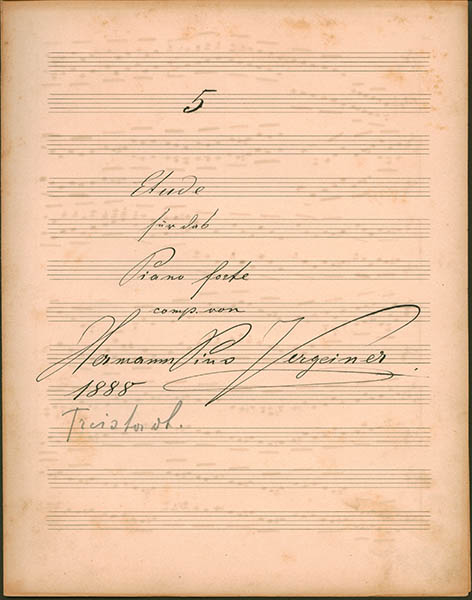 5
Etude
für das
Piano forte
comp. von
Hermann Pius Vergeiner.
1888
Freistadt.